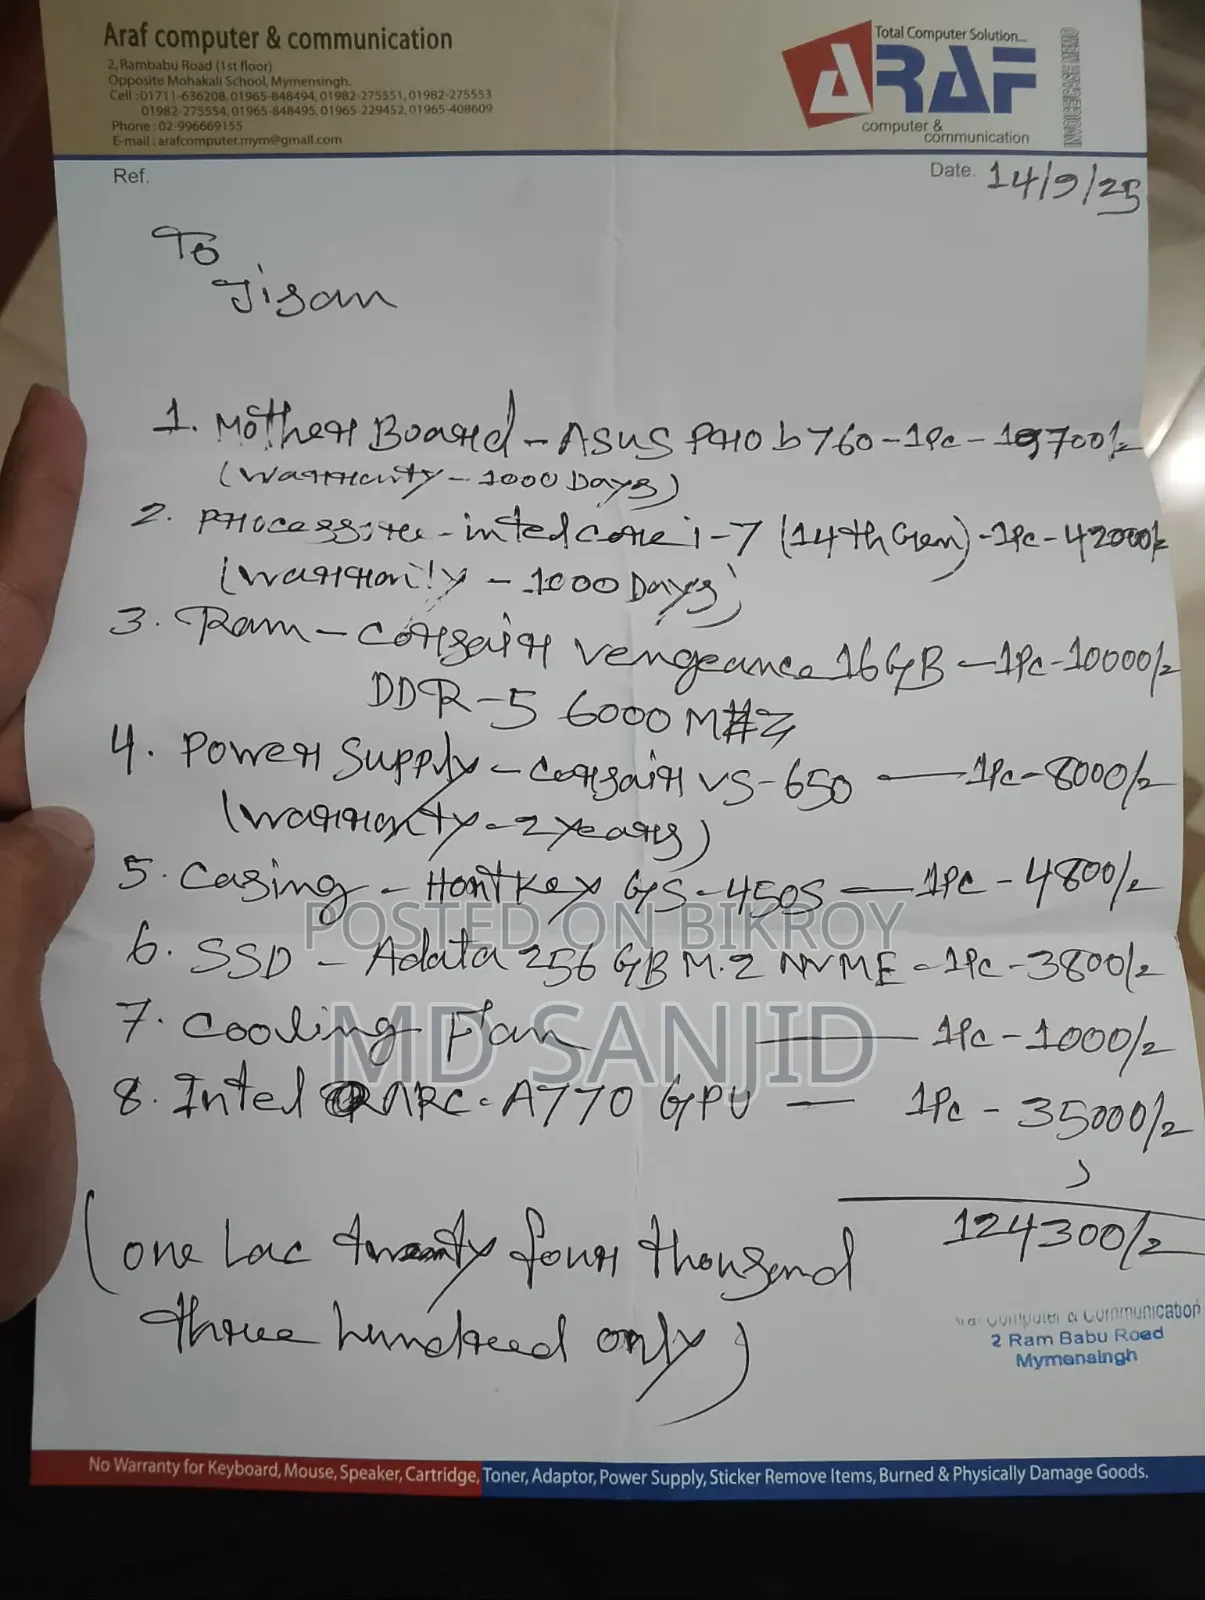 Araf computer & communication
2, Rambabu Road (1st floor)
Opposite Mohakali School, Mymensingh.
Cell : 01711-636208, 01965-848494, 01982-275551, 01982-275553
01982-275554, 01965-848495, 01965-229452, 01965-408609
Phone : 02-996669155
E-mail : arafcomputer.mym@gmail.com
Total Computer Solution...
ARAF
computer &
communication
Ref.
Date. 14/9/25
To
Jisan
1. Mother Board - ASUS PRO b760 - 1Pc - 19700/=
(Warranty - 1000 Days)
2. Processore - inted core i-7 (14th Gen) - 1Pc - 42000/=
(Warranty - 1000 Days)
3. Ram - Corsair vengeance 16GB - 1Pc - 10000/=
DDR-5 6000 MHz
4. Power Supply - Corsair VS-650 - 1Pc - 8000/=
(Warranty - 2 years)
5. Casing - HontKey GS-450S - 1Pc - 4800/=
POSTED ON BIKROY
6. SSD - Adata 256 GB M.2 NVME - 1Pc - 3800/=
7. Cooling Fan - 1Pc - 1000/=
MD SANJID
8. Intel ARC - A770 GPU - 1Pc - 35000/=
124300/=
(one Lac twenty four thousand
three hundred only)
Computer & Communication
2 Ram Babu Road
Mymensingh
No Warranty for Keyboard, Mouse, Speaker, Cartridge, Toner, Adaptor, Power Supply, Sticker Remove Items, Burned & Physically Damage Goods.